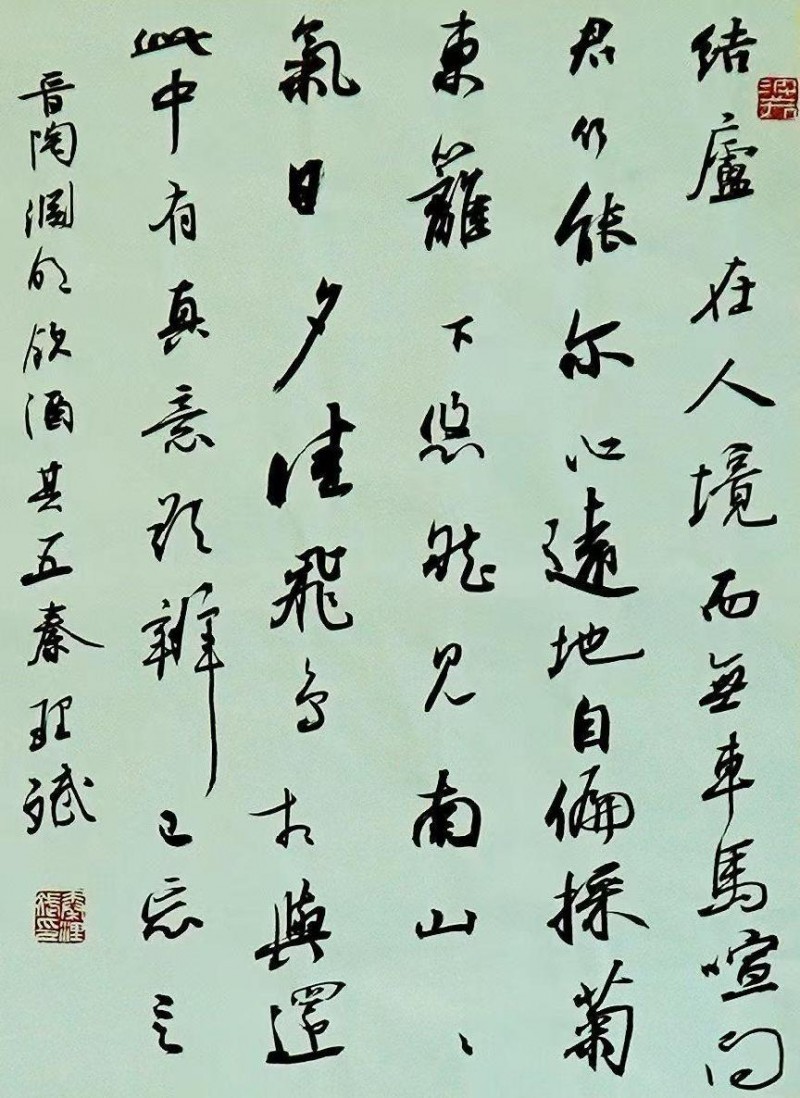 结廬在人境而無車馬喧问
君何能尔心遠地自偏採菊
東籬下悠然见南山山
氣日夕佳飛鸟相與還
此中有真意欲辨已忘言
晋陶渊明饮酒其五秦理斌